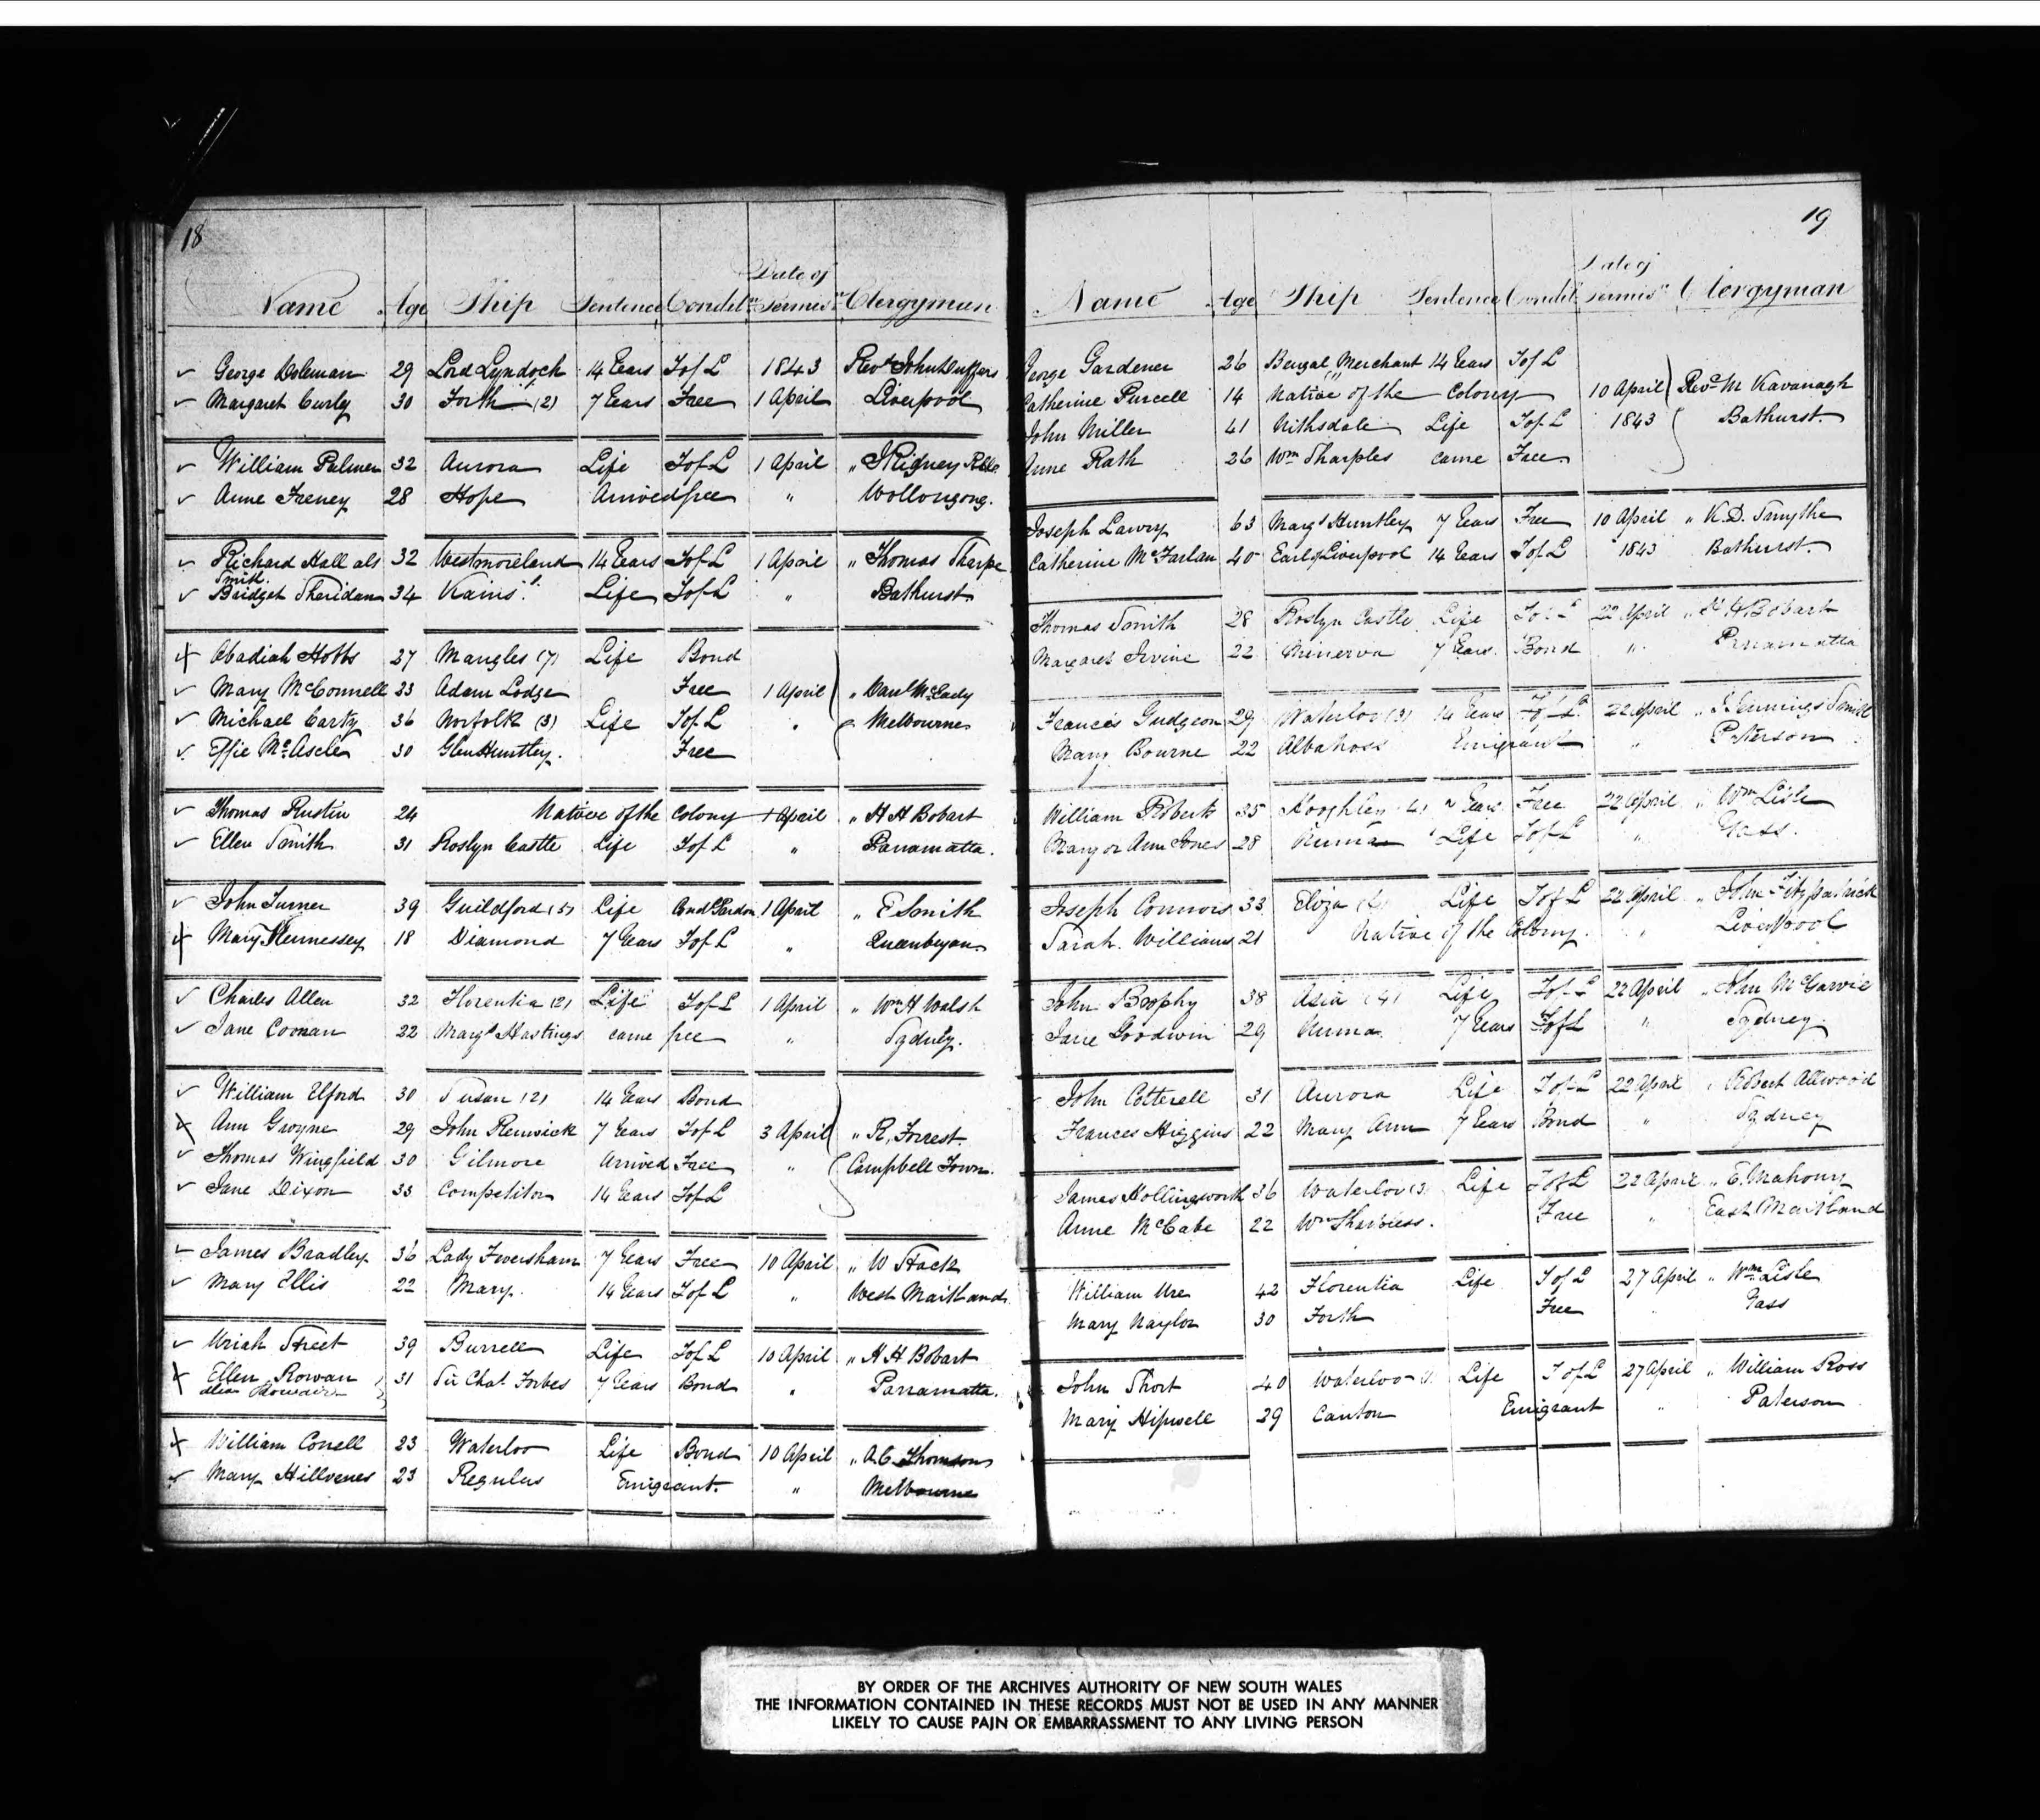 18
Date of
Name Age Ship Sentence Condit.n Permis.n Clergyman
George Coleman 29 Lord Lyndoch 14 Years T of L 1843 Revd John Duffus
Margaret Curly 30 Forth (2) 7 Years Free 1 April Liverpool
William Palmer 32 Aurora Life T of L 1 April "
Anne Freney 28 Hope Arrived free " Wollongong.
Richard Hall als 32 Westmoreland 14 Years T of L 1 April " Thomas Sharpe
Smith.
Bridget Sheridan 34 Kains Life T of L " Bathurst
Abadiah Hobbs 27 Mangles (7) Life Bond
Mary McConnell 23 Adam Lodge Free 1 April " Danl McEady
Michael Carty 36 Norfolk (3) Life T of L " Melbourne
Effie McAsclen 30 Glen Huntley. Free
Thomas Rustin 24 Native of the Colony 1 April " H H Bobart
Ellen Smith 31 Roslyn Castle Life T of L " Parramatta.
John Turner 39 Guildford (5) Life Condl Pardon 1 April " E Smith
Mary Hennessey 18 Diamond 7 Years T of L " Queanbeyan
Charles Allen 32 Florentia (2) Life T of L 1 April " Wm H Walsh
Jane Coonan 22 Margt Hastings came free " Sydney.
William Elford 30 Susan (2) 14 Years Bond
Ann Groyne 29 John Renwick 7 Years T of L 3 April " R. Forrest
Thomas Wingfield 30 Gilmore Arrived Free " Campbell Town.
Jane Dixon 33 Competitor 14 Years T of L
James Bradley 36 Lady Feversham 7 Years Free 10 April " W Stack
Mary Ellis 22 Mary. 14 Years T of L " West Maitland.
Uriah Street 39 Burrell Life T of L 10 April " H H Bobart
Ellen Rowan 31 Sir Chas Forbes 7 Years Bond " Parramatta.
alias
William Correll 23 Waterloo Life Bond 10 April " A.C. Thomson
Mary Hillvenes 23 Regulus Emigrant. " Melbourne
19
Date of
Name Age Ship Sentence Condit.n Permis.n Clergyman
George Gardener 26 Bengal Merchant 14 Years T of L
Catherine Purcell 14 Native of the Colony 10 April Revd M Kavanagh
John Miller 41 Nithsdale Life T of L 1843 Bathurst.
Anne Rath 26 Wm Sharples came Free
Joseph Lawry 63 Margt Huntley 7 Years Free 10 April " K.D. Smythe
Catherine McFarlan 40 Earl of Liverpool 14 Years T of L 1843 Bathurst.
Thomas Smith 28 Roslyn Castle Life T of L 22 April " H H Bobart
Margaret Irvine 22 Minerva 7 Years Bond " Parramatta
Frances Gudgeon 29 Waterloo (3) 14 Years T of L 22 April " J Jennings Smith
Mary Bourne 22 Albatross Emigrant " Paterson
William Roberts 35 Years Free 22 April " Wm Lisle
Mary or Ann Jones 28 Numa Life T of L " Yass.
Joseph Connors 33 Eliza Life T of L 22 April " John Fitzpatrick
Sarah Williams 21 Native of the Colony. " Liverpool
John Brophy 38 Asia (4) Life T of L 22 April " John McGarvie
Jane Goodwin 29 Numa 7 Years T of L " Sydney.
John Cotterell 31 Aurora Life T of L 22 April " Robert Allwood
Frances Higgins 22 Mary Ann 7 Years Bond " Sydney
James Hollingworth 36 Waterloo (3) Life T of L 22 April " E. Mahony
Anne McCabe 22 Wm Sharples. Free " East Maitland
William Ure 42 Florentia Life T of L 27 April " Wm Lisle
Mary Naylor 30 Forth Free " Yass
John Short 40 Waterloo Life T of L 27 April " William Ross
Mary Hipwell 29 Canton Emigrant " Paterson
BY ORDER OF THE ARCHIVES AUTHORITY OF NEW SOUTH WALES
THE INFORMATION CONTAINED IN THESE RECORDS MUST NOT BE USED IN ANY MANNER
LIKELY TO CAUSE PAIN OR EMBARRASSMENT TO ANY LIVING PERSON